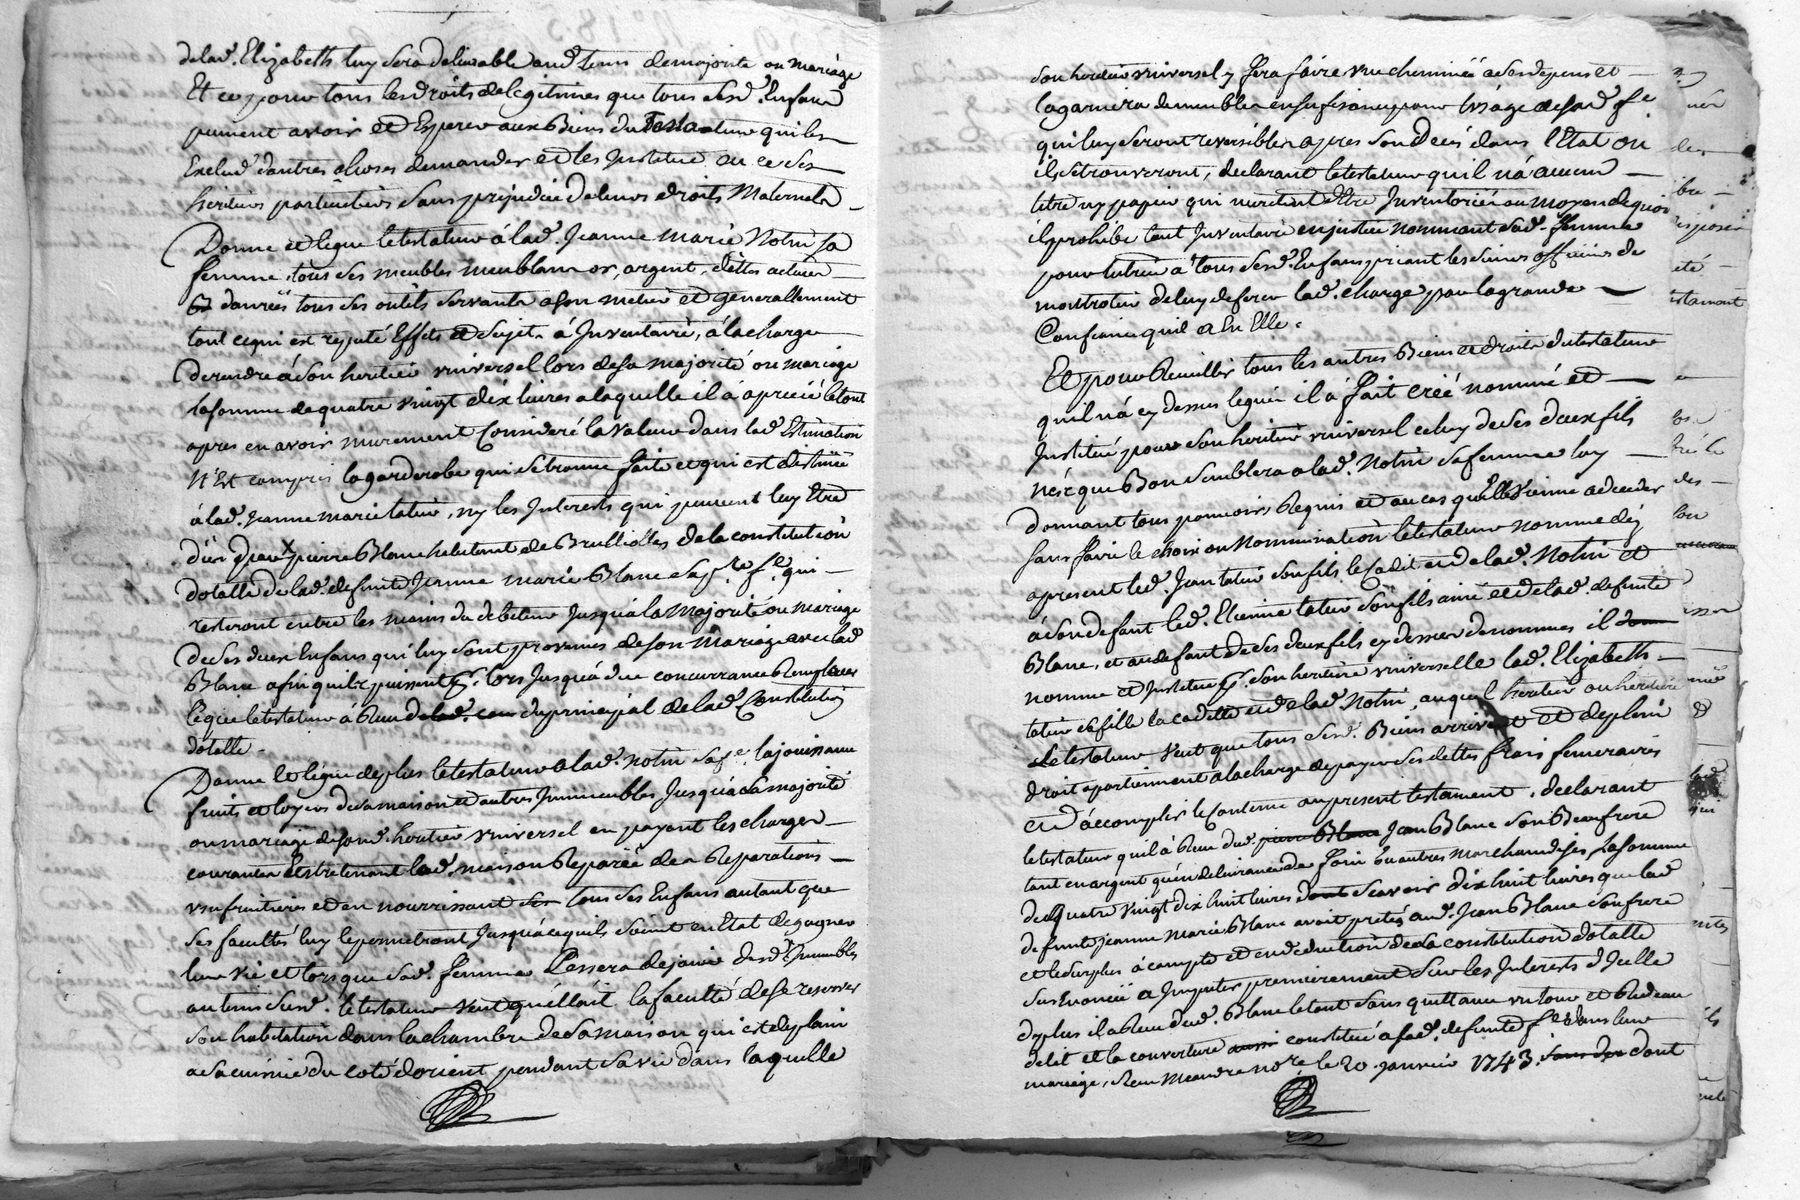 delad. Elizabeth luy sera delivrable aud. tems de majorité ou mariage
Et ce pour tous les droits de legitimes que tous sesd. Enfans
peuvent avoir et Esperer aux Biens du Testateur qui les
Exclud d'autres choses demander et les Institue en ce ses
heritiers particuliers sans prejudice de leurs droits Maternels
Donne et legue le testateur á lad. Jeanne marie Notin sa
femme, tous ses meubles meublans or, argent, dettes actives
et danrées tous ses outils servants a son metier et generallement
tout ce qui est reputé Effets et sujet á Inventaire, á la charge
de rendre á son heritier vniversel lors de sa majorité ou mariage
la somme de quatre vingt dix livres a laquelle il á aprecié le tout
apres en avoir murement Consideré la valeur dans lad. Estimation
N'Est compris la garderobe qui se trouve faite et qui est destinée
á lad. Jeanne marie tatin, ny les Interests qui peuvent luy Etre
dûs par pierre Blanc habitant de Brulliolles de la constitution
dotalle de lad. defunte Jeanne marie Blanc sa p.re f.e qui
resteront entre les mains du debiteur Jusquá la majorité ou mariage
de ses deux Enfans qui luy sont provenus de son Mariage avec lad.
Blanc afin quils puissent lors Jusquá due concurrance Remplacer
ce que le testateur á Reçu du principal de lad. Constitution
dotalle.
Donne et legue de plus le testateur a lad. Notin sa f.e la jouissance
fruits et loyers de sa maison et autres Immeubles Jusquá la majorité
ou mariage de sond. heritier vniversel en payant les charges
courantes Entretenant lad. maison Reparée de Reparations
vsufruitieres et en nourrissant tous ses Enfans autant que
ses facultés luy le permetront Jusquá ce quils soient en Etat de gagner
leur vie et lorsque sad. femme Cessera de jouir desd. Immeubles
au tems susd. le testateur veut quelle ait la faculté de se reserver
son habitation dans la chambre de sa maison qui est de plain
a sa cuisine du coté d'orient pendant sa vie dans laquelle
son heritier vniversel y fera faire vne cheminée a ses depens et
la garnira de meubles en sufisance pour l'vsage de sad. f.e
qui luy seront reversibles apres son decés dans l'Etat ou
ils se trouveront, declarant le testateur qu'il n'á aucun
titre ny papier qui meritent d'Etre Inventoriés au moyen de quoi
il prohibe tout Inventaire en justice nommant sad. femme
pour tutrice á tous sesd. Enfans priant les sieurs officiers de
montrotier de luy deferer lad. charge pour la grande
Confiance qu'il a En Elle.
Et pour Recueillir tous les autres Biens et droits du testateur
qu'il n'á cy dessus legués il á fait creé nommé et
Institué pour son heritier vniversel celuy de ses deux fils
nés que Bon semblera a lad. Notin sa femme luy
donnant tous pouvoirs Requis et au cas qu'Elle vienne a deceder
sans faire le choix ou Nomination le testateur nomme dez
apresent led. Jean tatin son fils le Cadet et de lad. Notin et
á son defaut led. Etienne tatin son fils ainé et de lad. defunte
Blanc, et au defaut de ses deux fils cy dessus denommés il
nomme et Institue son heritiere vniverselle lad. Elizabeth
tatin sa fille la cadette et de lad. Notin, auquel heritier ou heritiere
Le testateur veut que tous sesd. Biens arrivent et de plain
droit apartiennent a la charge de payer ses dettes frais funeraires
et d'accomplir le Contenu au present testament. declarant
le testateur qu'il á Reçu dud. pierre Blanc Jean Blanc son Beaufrere
tant en argent qu'en delivrance de foin ou autres marchandises la somme
de quatre vingt dix huit livres dont scavoir dix huit livres que lad.
defunte jeanne Marie Blanc avoit pretés aud. Jean Blanc son frere
et le surplus á compte et en deduction de la constitution dotalle
susenoncée a Imputer premierement sur les Interests d'Icelle
de plus il a Reçu dud. Blanc le tout sans quittance vn tour et Rideau
de lit et la couverture aussi constitué a sad. defunte f.e dans leur
mariage, Reçu Meandre no.re le 20. janvier 1743. dont